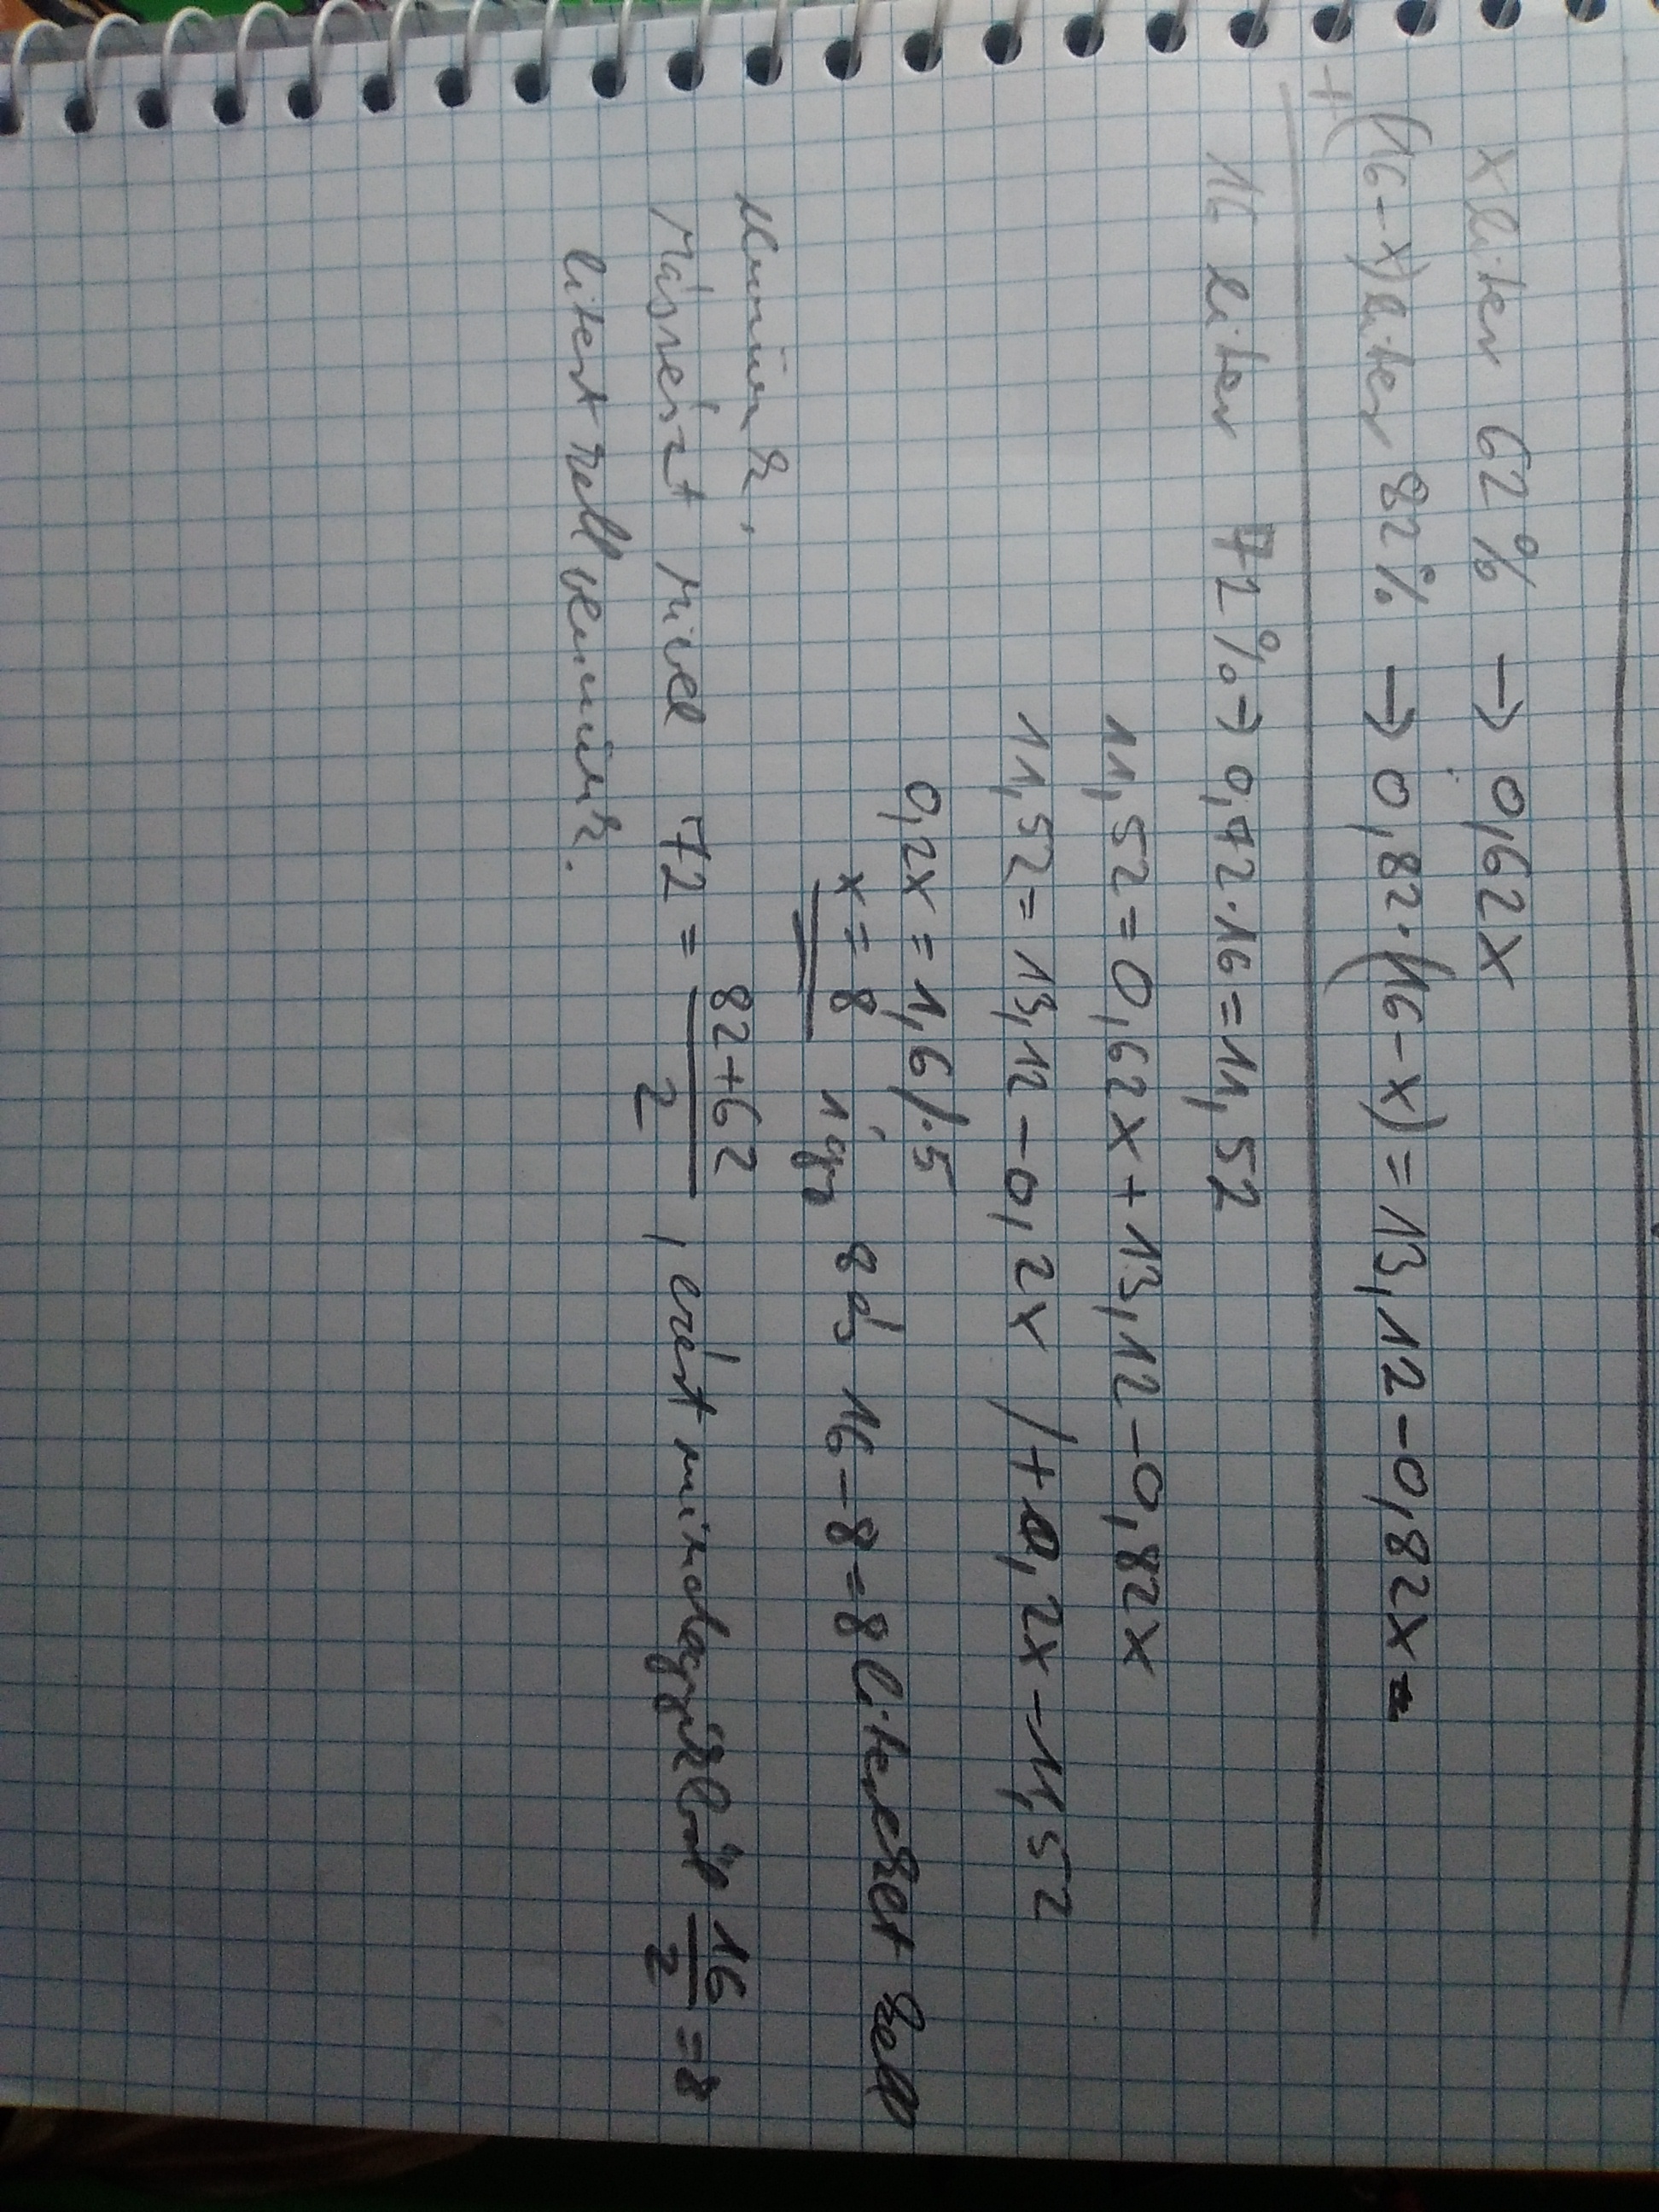 x liter 62% → 0,62x
+ (16-x) liter 82% → 0,82·(16-x) = 13,12-0,82x=
16 liter 72% → 0,72·16=11,52
11,52=0,62x+13,12-0,82x
11,52=13,12-0,2x /+0,2x-11,52
0,2x=1,6/·5
x=8 Így 8 és 16-8=8 litereket kell
vennünk.
Másrészt mivel 72 = (82+62)/2, ezért mindegyikből 16/2=8
litert kell vennünk.